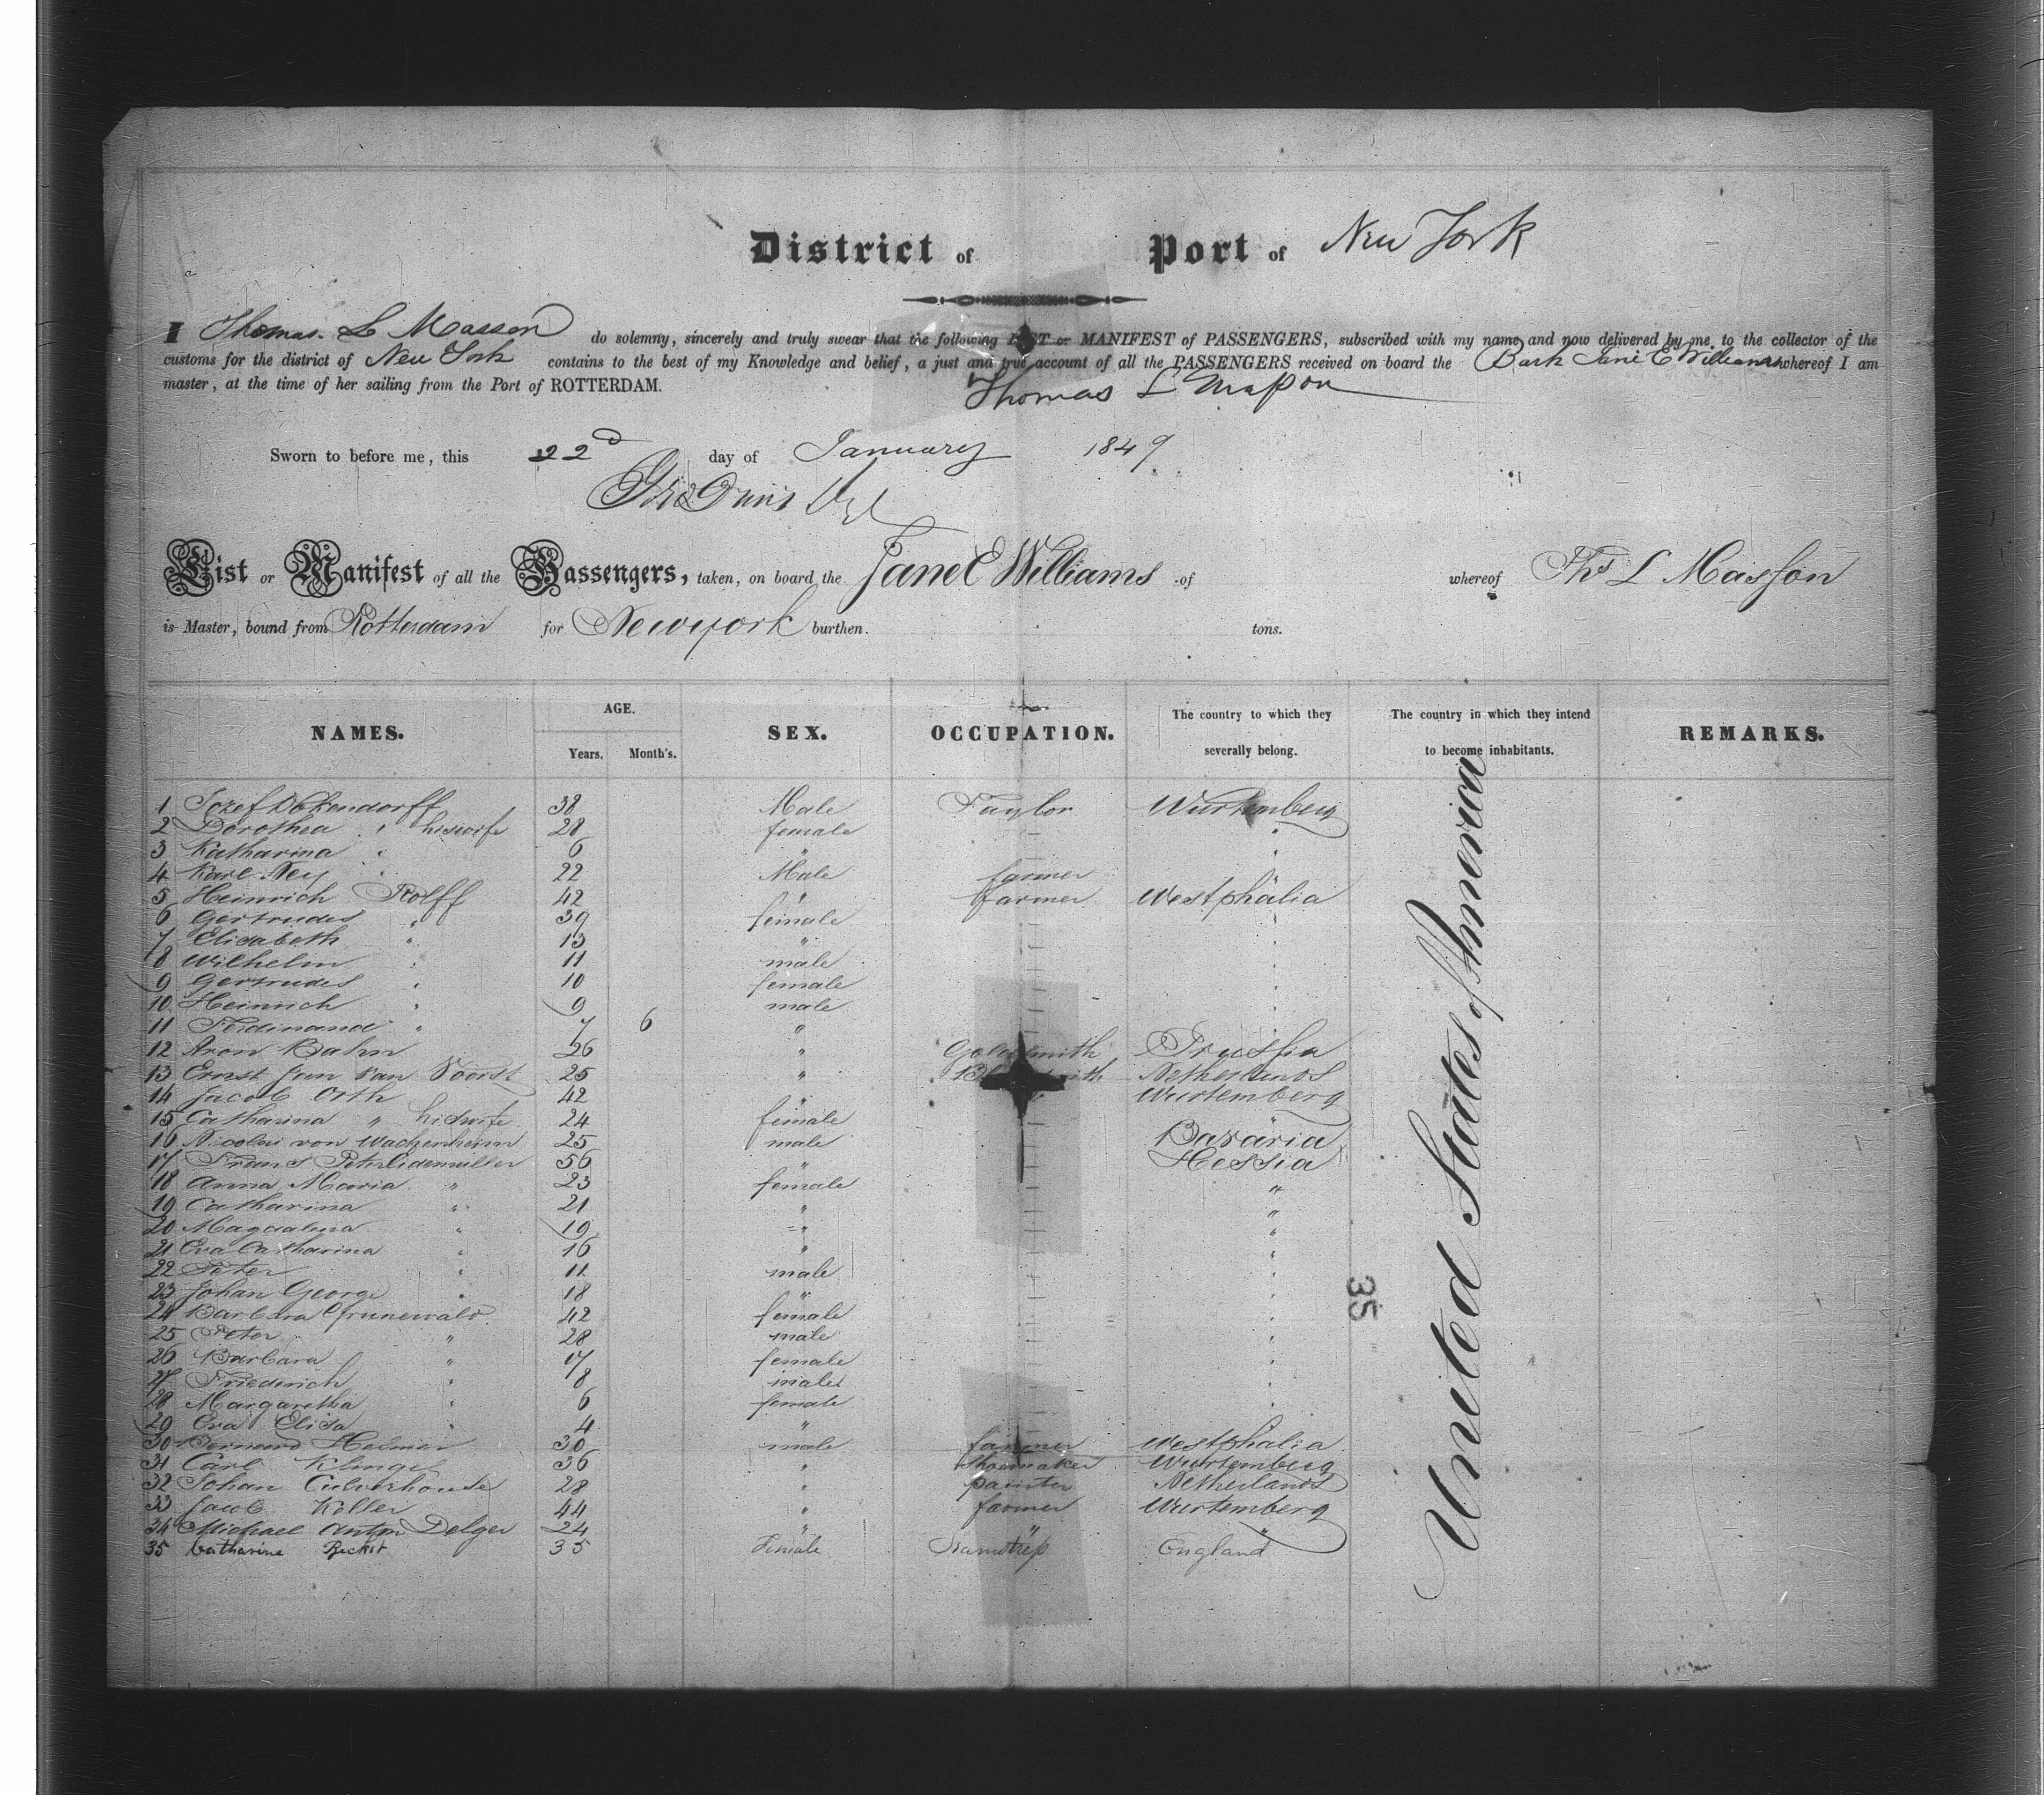 District of Port of New York
I Thomas. L Masson do solemny, sincerely and truly swear that the following LIST or MANIFEST of PASSENGERS, subscribed with my name and now delivered by me, to the collector of the
customs for the district of New York contains to the best of my Knowledge and belief, a just and true account of all the PASSENGERS received on board the Bark Jane E Williams whereof I am
master, at the time of her sailing from the Port of ROTTERDAM.
Thomas L Masson
Sworn to before me, this 22d day of January 1849
List or Manifest of all the Passengers, taken, on board the Jane E Williams of whereof Ths L Masson
is Master, bound from Rotterdam for Newyork burthen. tons.
NAMES. AGE. Years. Month's. SEX. OCCUPATION. The country to which they severally belong. The country in which they intend to become inhabitants. REMARKS.
1 Jozef 38 Male Taylor Wurtemberg
2 Dorothea " his wife 28 female "
3 Katharina " 6 " "
4 Karl Ney 22 Male farmer "
5 Heinrich Rolff 42 " farmer Westphalia
6 Gertrudes " 39 female "
7 Elisabeth " 13 " "
8 Wilhelm " 11 male "
9 Gertrudes " 10 female "
10 Heinrich " 9 male "
11 Ferdinand " 7 6 " "
12 Aron Bahn 26 " Goldsmith Prussia
13 Ernst Jan van Voorst 25 " Netherlands
14 Jacob Orth 42 " Wurtemberg
15 Catharina " his wife 24 female "
16 Nicolas von Wachenheim 25 male Bavaria
17 Frans Peter 56 " Hessia
18 Anna Maria " 23 female "
19 Catharina " 21 " "
20 Magdalena " 19 " "
21 Eva Catharina " 16 " "
22 Peter " 11 male "
23 Johan George " 18 " "
24 Barbara Grunewald 42 female "
25 Peter " 28 male "
26 Barbara " 17 female "
27 Friederich " 8 male "
28 Margaretha " 6 female "
29 Eva Elisa " 4 " "
30 Bernard Helmer 30 male farmer Westphalia
31 Carl Klingel 36 " Shoemaker Wurtemberg
32 Johan Culverhouse 28 " painter Netherlands
33 Jacob Keller 44 " farmer Wurtemberg
34 Michael Anton Delger 24 " " "
35 Catharine 35 Female England
United States of America
35